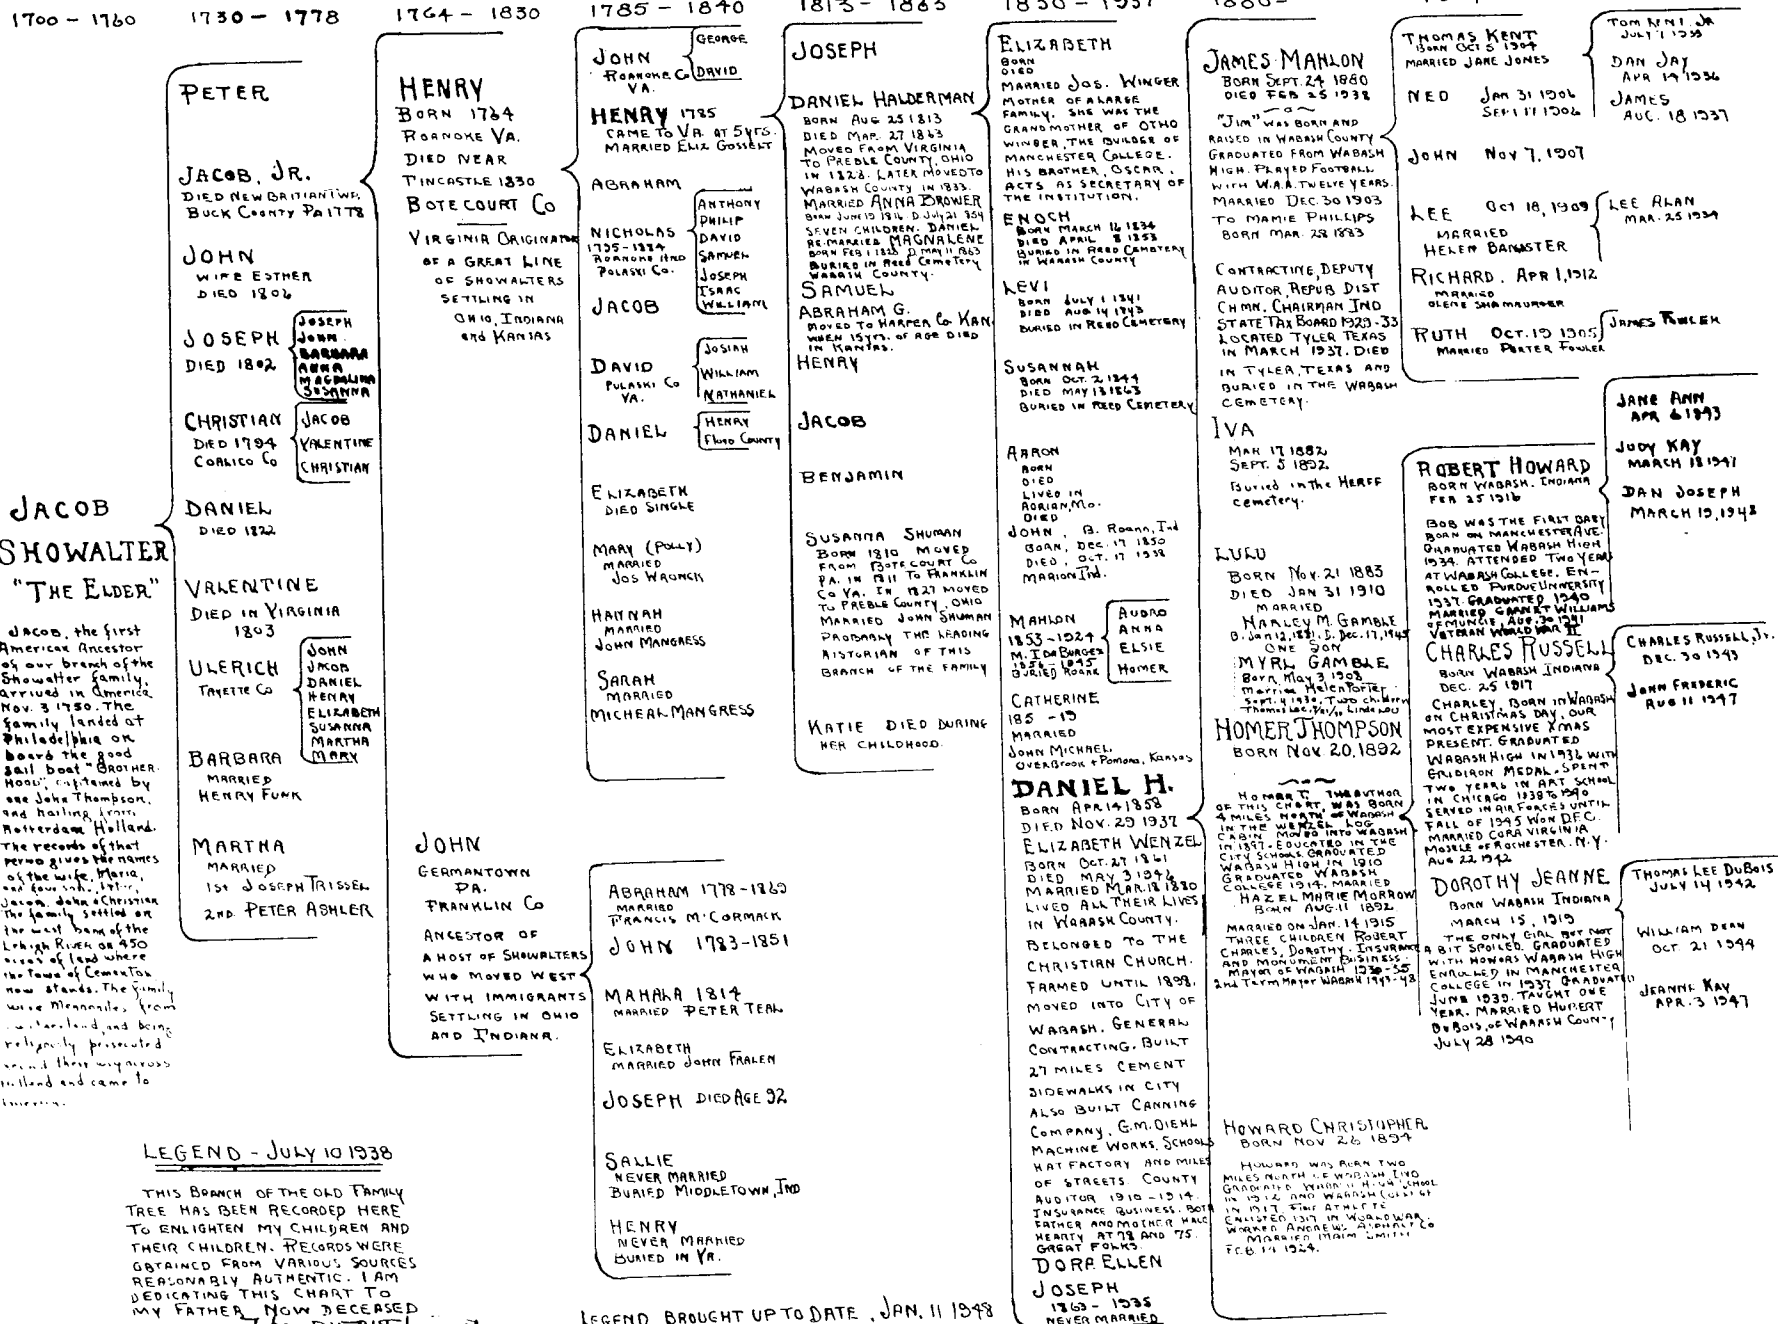 1700 - 1760
1730 - 1778
1764 - 1830
1785 - 1840
1813 - 1863
JACOB
SHOWALTER
"THE ELDER"
JACOB, the first
American Ancestor
of our branch of the
Showalter family,
arrived in America
Nov. 3 1750. The
family landed at
Philadelphia on
board the good
sail boat "BROTHER-
HOOD", captained by
one John Thompson,
and hailing from
Rotterdam Holland.
The records of that
period gives the names
of the wife, Maria,
and four sons, Peter,
Jacob, John & Christian
The family settled on
the west bank of the
Lehigh River on 450
acres of land where
the town of Cementon
now stands. The family
were Mennonites, from
and being
religiously persecuted
their way across
Holland and came to
America.
PETER
JACOB, JR.
DIED NEW BRITIAN TWP.
BUCK COUNTY PA 1778
JOHN
WIFE ESTHER
DIED 1806
JOSEPH
DIED 1802
JOSEPH
JOHN
BARBARA
ANNA
MAGDALINA
SUSANNA
CHRISTIAN
DIED 1794
COALICO CO
JACOB
VALENTINE
CHRISTIAN
DANIEL
DIED 1822
VALENTINE
DIED IN VIRGINIA
1803
ULERICH
FAYETTE CO
JOHN
JACOB
DANIEL
HENRY
ELIZABETH
SUSANNA
MARTHA
MARY
BARBARA
MARRIED
HENRY FUNK
MARTHA
MARRIED
1ST JOSEPH TRISSEL
2ND. PETER ASHLER
HENRY
BORN 1764
ROANOKE VA.
DIED NEAR
FINCASTLE 1830
BOTECOURT CO
VIRGINIA ORIGINATOR
OF A GREAT LINE
OF SHOWALTERS
SETTLING IN
OHIO, INDIANA
and KANSAS
JOHN
GERMANTOWN
PA.
FRANKLIN CO
ANCESTOR OF
A HOST OF SHOWALTERS
WHO MOVED WEST
WITH IMMIGRANTS
SETTLING IN OHIO
AND INDIANA.
JOHN
ROANOKE CO
VA.
GEORGE
DAVID
HENRY 1785
CAME TO VA. AT 5 YRS.
MARRIED ELIZ GOSSELT
ABRAHAM
NICHOLAS
1795-1884
ROANOKE AND
PULASKI CO.
ANTHONY
PHILIP
DAVID
SAMUEL
JOSEPH
ISAAC
WILLIAM
JACOB
DAVID
PULASKI CO
VA.
JOSIAH
WILLIAM
NATHANIEL
DANIEL
HENRY
FLOYD COUNTY
ELIZABETH
DIED SINGLE
MARY (POLLY)
MARRIED
JOS WRONCK
HANNAH
MARRIED
JOHN MANGRESS
SARAH
MARRIED
MICHEAL MANGRESS
ABRAHAM 1778-1869
MARRIED
FRANCIS McCORMACK
JOHN 1783-1851
MAHALA 1814
MARRIED PETER TEAL
ELIZABETH
MARRIED JOHN FRALEN
JOSEPH DIED AGE 92
SALLIE
NEVER MARRIED
BURIED MIDDLETOWN, IND
HENRY
NEVER MARRIED
BURIED IN VA.
JOSEPH
DANIEL HALDERMAN
BORN AUG 25 1813
DIED MAR. 27 1863
MOVED FROM VIRGINIA
TO PREBLE COUNTY, OHIO
IN 1828. LATER MOVED TO
WABASH COUNTY IN 1833.
MARRIED ANNA BROWER
BORN JUNE 19 1816. D. JULY 21 1854
SEVEN CHILDREN. DANIEL
RE-MARRIED MAGNALENE
BORN FEB 1 1828 D. MAY 11 1863
BURIED IN REED CEMETERY
WABASH COUNTY.
SAMUEL
ABRAHAM G.
MOVED TO HARPER CO. KAN.
WHEN 15 YRS. OF AGE DIED
IN KANSAS.
HENRY
JACOB
BENJAMIN
SUSANNA SHUMAN
BORN 1810 MOVED
FROM BOTECOURT CO
PA. IN 1811 TO FRANKLIN
CO VA. IN 1827 MOVED
TO PREBLE COUNTY, OHIO
MARRIED JOHN SHUMAN
PROBABLY THE LEADING
HISTORIAN OF THIS
BRANCH OF THE FAMILY
KATIE DIED DURING
HER CHILDHOOD.
ELIZABETH
BORN
DIED
MARRIED JOS. WINGER
MOTHER OF A LARGE
FAMILY. SHE WAS THE
GRANDMOTHER OF OTHO
WINGER, THE BUILDER OF
MANCHESTER COLLEGE.
HIS BROTHER, OSCAR,
ACTS AS SECRETARY OF
THE INSTITUTION.
ENOCH
BORN MARCH 16 1834
DIED APRIL 8 1853
BURIED IN REED CEMETERY
IN WABASH COUNTY
LEVI
BORN JULY 1 1841
DIED AUG 14 1843
BURIED IN REED CEMETERY
SUSANNAH
BORN OCT. 2 1844
DIED MAY 13 1863
BURIED IN REED CEMETERY
AARON
BORN
DIED
LIVED IN
ADRIAN, MO.
DIED
JOHN, B. Roann, Ind
BORN, DEC. 17 1850
DIED, OCT. 17 1938
MARION IND.
MAHLON
1853-1924
M. IDA BURGES
1856-1945
BURIED ROANN
AUDRO
ANNA
ELSIE
HOMER
CATHERINE
185 -19
MARRIED
JOHN MICHAEL
OVERBROOK + Pomona, Kansas
DANIEL H.
BORN APR 14 1858
DIED NOV. 29 1937
ELIZABETH WENZEL
BORN OCT. 27 1861
DIED MAY 3 1946
MARRIED MAR. 18 1880
LIVED ALL THEIR LIVES
IN WABASH COUNTY.
BELONGED TO THE
CHRISTIAN CHURCH.
FARMED UNTIL 1898.
MOVED INTO CITY OF
WABASH. GENERAL
CONTRACTING. BUILT
27 MILES CEMENT
SIDEWALKS IN CITY
ALSO BUILT CANNING
COMPANY, G.M. DIEHL
MACHINE WORKS, SCHOOLS
HAT FACTORY AND MILES
OF STREETS. COUNTY
AUDITOR 1910-1914.
INSURANCE BUSINESS. BOTH
FATHER AND MOTHER HALE
HEARTY AT 78 AND 75.
GREAT FOLKS.
DORA ELLEN
JOSEPH
1863-1935
NEVER MARRIED
JAMES MAHLON
BORN SEPT. 24 1880
DIED FEB 25 1938
"JIM" WAS BORN AND
RAISED IN WABASH COUNTY
GRADUATED FROM WABASH
HIGH. PLAYED FOOTBALL
WITH W.A.A. TWELVE YEARS.
MARRIED DEC. 30 1903
TO MAMIE PHILLIPS
BORN MAR. 28 1883
CONTRACTING, DEPUTY
AUDITOR, REPUB DIST
CHMN. CHAIRMAN IND
STATE TAX BOARD 1929-33
LOCATED TYLER TEXAS
IN MARCH 1937. DIED
IN TYLER, TEXAS AND
BURIED IN THE WABASH
CEMETERY.
IVA
MAR 17 1882
SEPT. 5 1892
Buried in the HERFF
cemetery.
LULU
BORN NOV. 21 1883
DIED JAN 31 1910
MARRIED
HARLEY M. GAMBLE
B. Jan 12, 1881. D. Dec. 17, 1945
ONE SON
MYRL GAMBLE
Born, May 3 1908
Married Helen Porter
Sept. 4 1930, Two children
HOMER THOMPSON
BORN NOV. 20, 1892
HOMER T. THE AUTHOR
OF THIS CHART, WAS BORN
4 MILES NORTH OF WABASH
IN THE WENZEL LOG
CABIN. MOVED INTO WABASH
IN 1897. EDUCATED IN THE
CITY SCHOOLS. GRADUATED
WABASH HIGH IN 1910
GRADUATED WABASH
COLLEGE 1914. MARRIED
HAZEL MARIE MORROW
BORN AUG. 11 1892
MARRIED ON JAN. 14 1915
THREE CHILDREN ROBERT
CHARLES, DOROTHY. INSURANCE
AND MONUMENT BUSINESS.
MAYOR OF WABASH
2nd TERM MAYOR WABASH 1943-48
HOWARD CHRISTOPHER
BORN NOV 26 1894
HOWARD WAS BORN TWO
MILES NORTH OF WABASH IND
GRADUATED WABASH HIGH SCHOOL
IN 1912 AND WABASH COLLEGE
IN 1917. FINE ATHLETE
ENLISTED 1917 IN WORLD WAR.
WORKED ANDREWS ASPHALT CO
MARRIED MAIM SMITH
FEB. 14 1924.
THOMAS KENT
BORN OCT 5 1904
MARRIED JANE JONES
TOM KENT. JR
DAN JAY
APR 14 1936
JAMES
AUG. 18 1937
NED JAN 31 1906
SEPT 17 1906
JOHN NOV 7, 1907
LEE OCT 18, 1909
MARRIED
HELEN BANISTER
LEE ALAN
MAR. 25 1934
RICHARD. APR 1, 1912
MARRIED
OLENE SHAMBURGER
RUTH OCT. 19 1905
MARRIED PORTER FOWLER
JAMES FOWLER
ROBERT HOWARD
BORN WABASH, INDIANA
FEB 25 1916
BOB WAS THE FIRST BABY
BORN ON MANCHESTER AVE.
GRADUATED WABASH HIGH
1934. ATTENDED TWO YEARS
AT WABASH COLLEGE. EN-
ROLLED PURDUE UNIVERSITY
1937. GRADUATED 1940
MARRIED GARNET WILLIAMS
OF MUNCIE, AUG. 30 1941
VETERAN WORLD WAR II
JANE ANN
APR 6 1943
JUDY KAY
MARCH 18 1947
DAN JOSEPH
MARCH 19, 1948
CHARLES RUSSELL
BORN WABASH INDIANA
DEC. 25 1917
CHARLEY, BORN IN WABASH
ON CHRISTMAS DAY, OUR
MOST EXPENSIVE XMAS
PRESENT. GRADUATED
WABASH HIGH IN 1936 WITH
GRIDIRON MEDAL. SPENT
TWO YEARS IN ART SCHOOL
IN CHICAGO 1938 TO 1940
SERVED IN AIR FORCES UNTIL
FALL OF 1945 WON D.F.C.
MARRIED CORA VIRGINIA
MOSELE OF ROCHESTER. N.Y.
AUG 22 1942
CHARLES RUSSELL, Jr.
DEC. 30 1943
JOHN FREDERIC
AUG 11 1947
DOROTHY JEANNE
BORN WABASH INDIANA
MARCH 15, 1919
THE ONLY GIRL BUT NOT
A BIT SPOILED. GRADUATED
WITH HONORS WABASH HIGH
ENROLLED IN MANCHESTER
COLLEGE IN 1937 GRADUATED
JUNE 1939. TAUGHT ONE
YEAR. MARRIED HUBERT
DuBOIS, OF WABASH COUNTY
JULY 28 1940
THOMAS LEE DuBOIS
JULY 14 1942
WILLIAM DEAN
OCT 21 1944
JEANNE KAY
APR. 3 1947
LEGEND - JULY 10 1938
THIS BRANCH OF THE OLD FAMILY
TREE HAS BEEN RECORDED HERE
TO ENLIGHTEN MY CHILDREN AND
THEIR CHILDREN. RECORDS WERE
OBTAINED FROM VARIOUS SOURCES
REASONABLY AUTHENTIC. I AM
DEDICATING THIS CHART TO
MY FATHER NOW DECEASED
LEGEND BROUGHT UP TO DATE, JAN. 11 1948